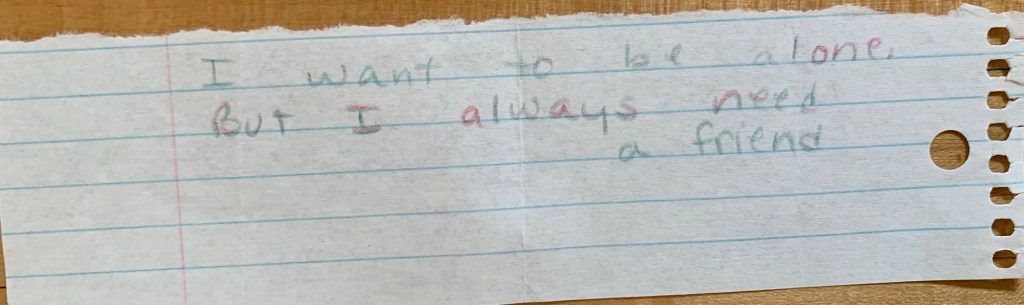 I want to be alone.
But I always need
a friend